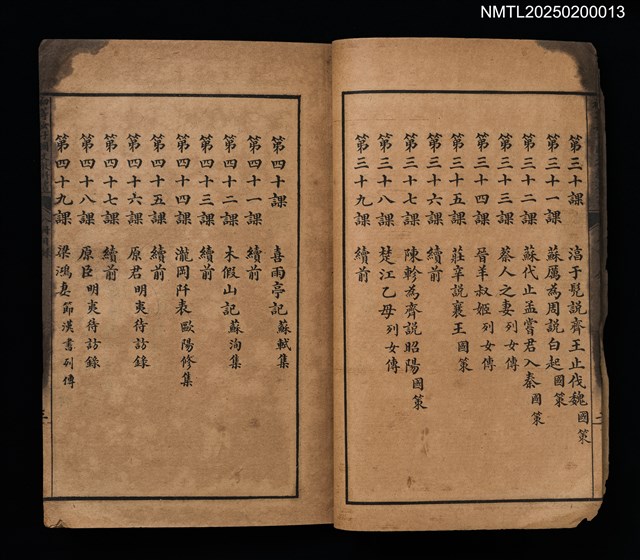 NMTL20250200013
第三十課 淳于髠説齊王止伐魏 國策
第三十一課 蘇厲為周説白起 國策
第三十二課 蘇代止孟嘗君入秦 國策
第三十三課 蔡人之妻 列女傳
第三十四課 晉羊叔姬 列女傳
第三十五課 莊辛説襄王 國策
第三十六課 續前
第三十七課 陳軫為齊説昭陽 國策
第三十八課 楚江乙母 列女傳
第三十九課 續前
二
第四十課 喜雨亭記 蘇軾集
第四十一課 續前
第四十二課 木假山記 蘇洵集
第四十三課 續前
第四十四課 瀧岡阡表 歐陽修集
第四十五課 續前
第四十六課 原君 明夷待訪錄
第四十七課 續前
第四十八課 原臣 明夷待訪錄
第四十九課 梁鴻妻 節漢書列傳
三